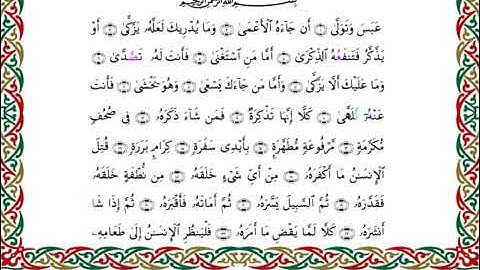 بسم الله الرحمن الرحيم
عَبَسَ وَتَوَلَّىٰٓ ۝ أَن جَآءَهُ ٱلْأَعْمَىٰ ۝ وَمَا يُدْرِيكَ لَعَلَّهُۥ يَزَّكَّىٰٓ ۝ أَوْ
يَذَّكَّرُ فَتَنفَعَهُ ٱلذِّكْرَىٰٓ ۝ أَمَّا مَنِ ٱسْتَغْنَىٰ ۝ فَأَنتَ لَهُۥ تَصَدَّىٰ ۝
وَمَا عَلَيْكَ أَلَّا يَزَّكَّىٰ ۝ وَأَمَّا مَن جَآءَكَ يَسْعَىٰ ۝ وَهُوَ يَخْشَىٰ ۝ فَأَنتَ
عَنْهُ تَلَهَّىٰ ۝ كَلَّآ إِنَّهَا تَذْكِرَةٌ ۝ فَمَن شَآءَ ذَكَرَهُۥ ۝ فِى صُحُفٍ
مُّكَرَّمَةٍ ۝ مَّرْفُوعَةٍ مُّطَهَّرَةٍۭ ۝ بِأَيْدِى سَفَرَةٍ ۝ كِرَامٍۭ بَرَرَةٍ ۝ قُتِلَ
ٱلْإِنسَٰنُ مَآ أَكْفَرَهُۥ ۝ مِنْ أَىِّ شَىْءٍ خَلَقَهُۥ ۝ مِن نُّطْفَةٍ خَلَقَهُۥ
فَقَدَّرَهُۥ ۝ ثُمَّ ٱلسَّبِيلَ يَسَّرَهُۥ ۝ ثُمَّ أَمَاتَهُۥ فَأَقْبَرَهُۥ ۝ ثُمَّ إِذَا شَآ
أَنشَرَهُۥ ۝ كَلَّا لَمَّا يَقْضِ مَآ أَمَرَهُۥ ۝ فَلْيَنظُرِ ٱلْإِنسَٰنُ إِلَىٰ طَعَامِهِۦٓ